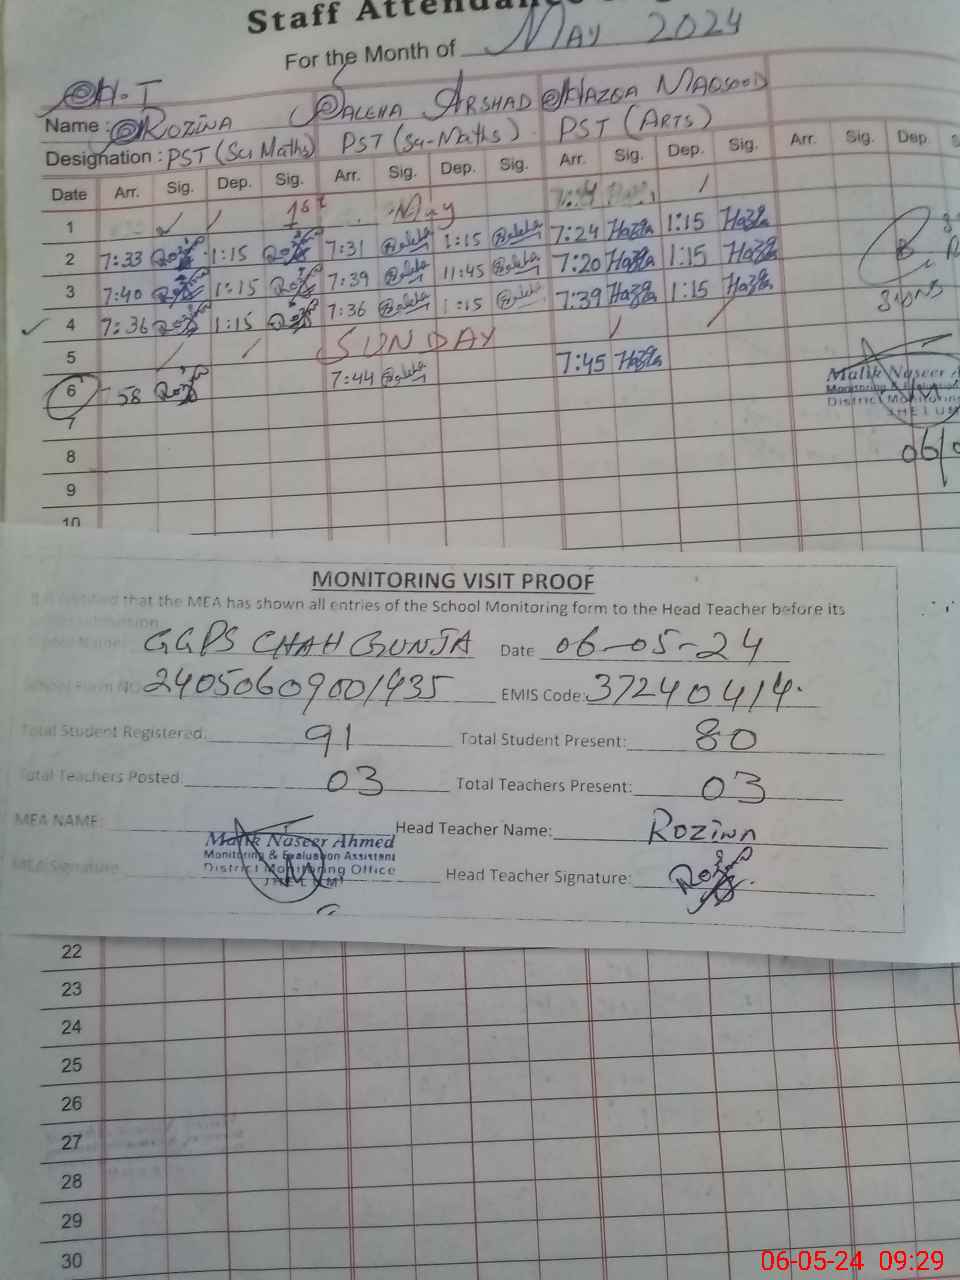 Staff Attendance
For the Month of May 2024
H.T
Name : Rozina Saleha Arshad Hazqa Maqsood
Designation : PST (Sci Maths) PST (Sci-Maths) PST (ARTS)
Date Arr. Sig. Dep. Sig. Arr. Sig. Dep. Sig. Arr. Sig. Dep. Sig. Arr. Sig. Dep.
1 1st May
2 7:33 1:15 7:31 Saleha 1:15 Saleha 7:24 Hazqa 1:15 Hazqa
3 7:40 1:15 7:39 Saleha 11:45 Saleha 7:20 Hazqa 1:15 Hazqa
4 7:36 1:15 7:36 Saleha 1:15 Saleha 7:39 Hazqa 1:15 Hazqa
5 SUNDAY
6 58 7:44 Saleha 7:45 Hazqa
Malik Naseer A
Monitoring & Evaluation
District Monitoring
JHELUM
06/0
7
8
9
10
MONITORING VISIT PROOF
that the MEA has shown all entries of the School Monitoring form to the Head Teacher before its
GGPS CHAH GUNJA Date 06-05-24
School Form NO 24050609001435 EMIS Code: 37240414
Total Student Registered: 91 Total Student Present: 80
Total Teachers Posted: 03 Total Teachers Present: 03
MEA NAME: Head Teacher Name: Rozina
Malik Naseer Ahmed
Monitoring & Evaluation Assistant
District Monitoring Office
JHELUM
MEA Signature Head Teacher Signature:
22
23
24
25
26
27
28
29
30
06-05-24 09:29